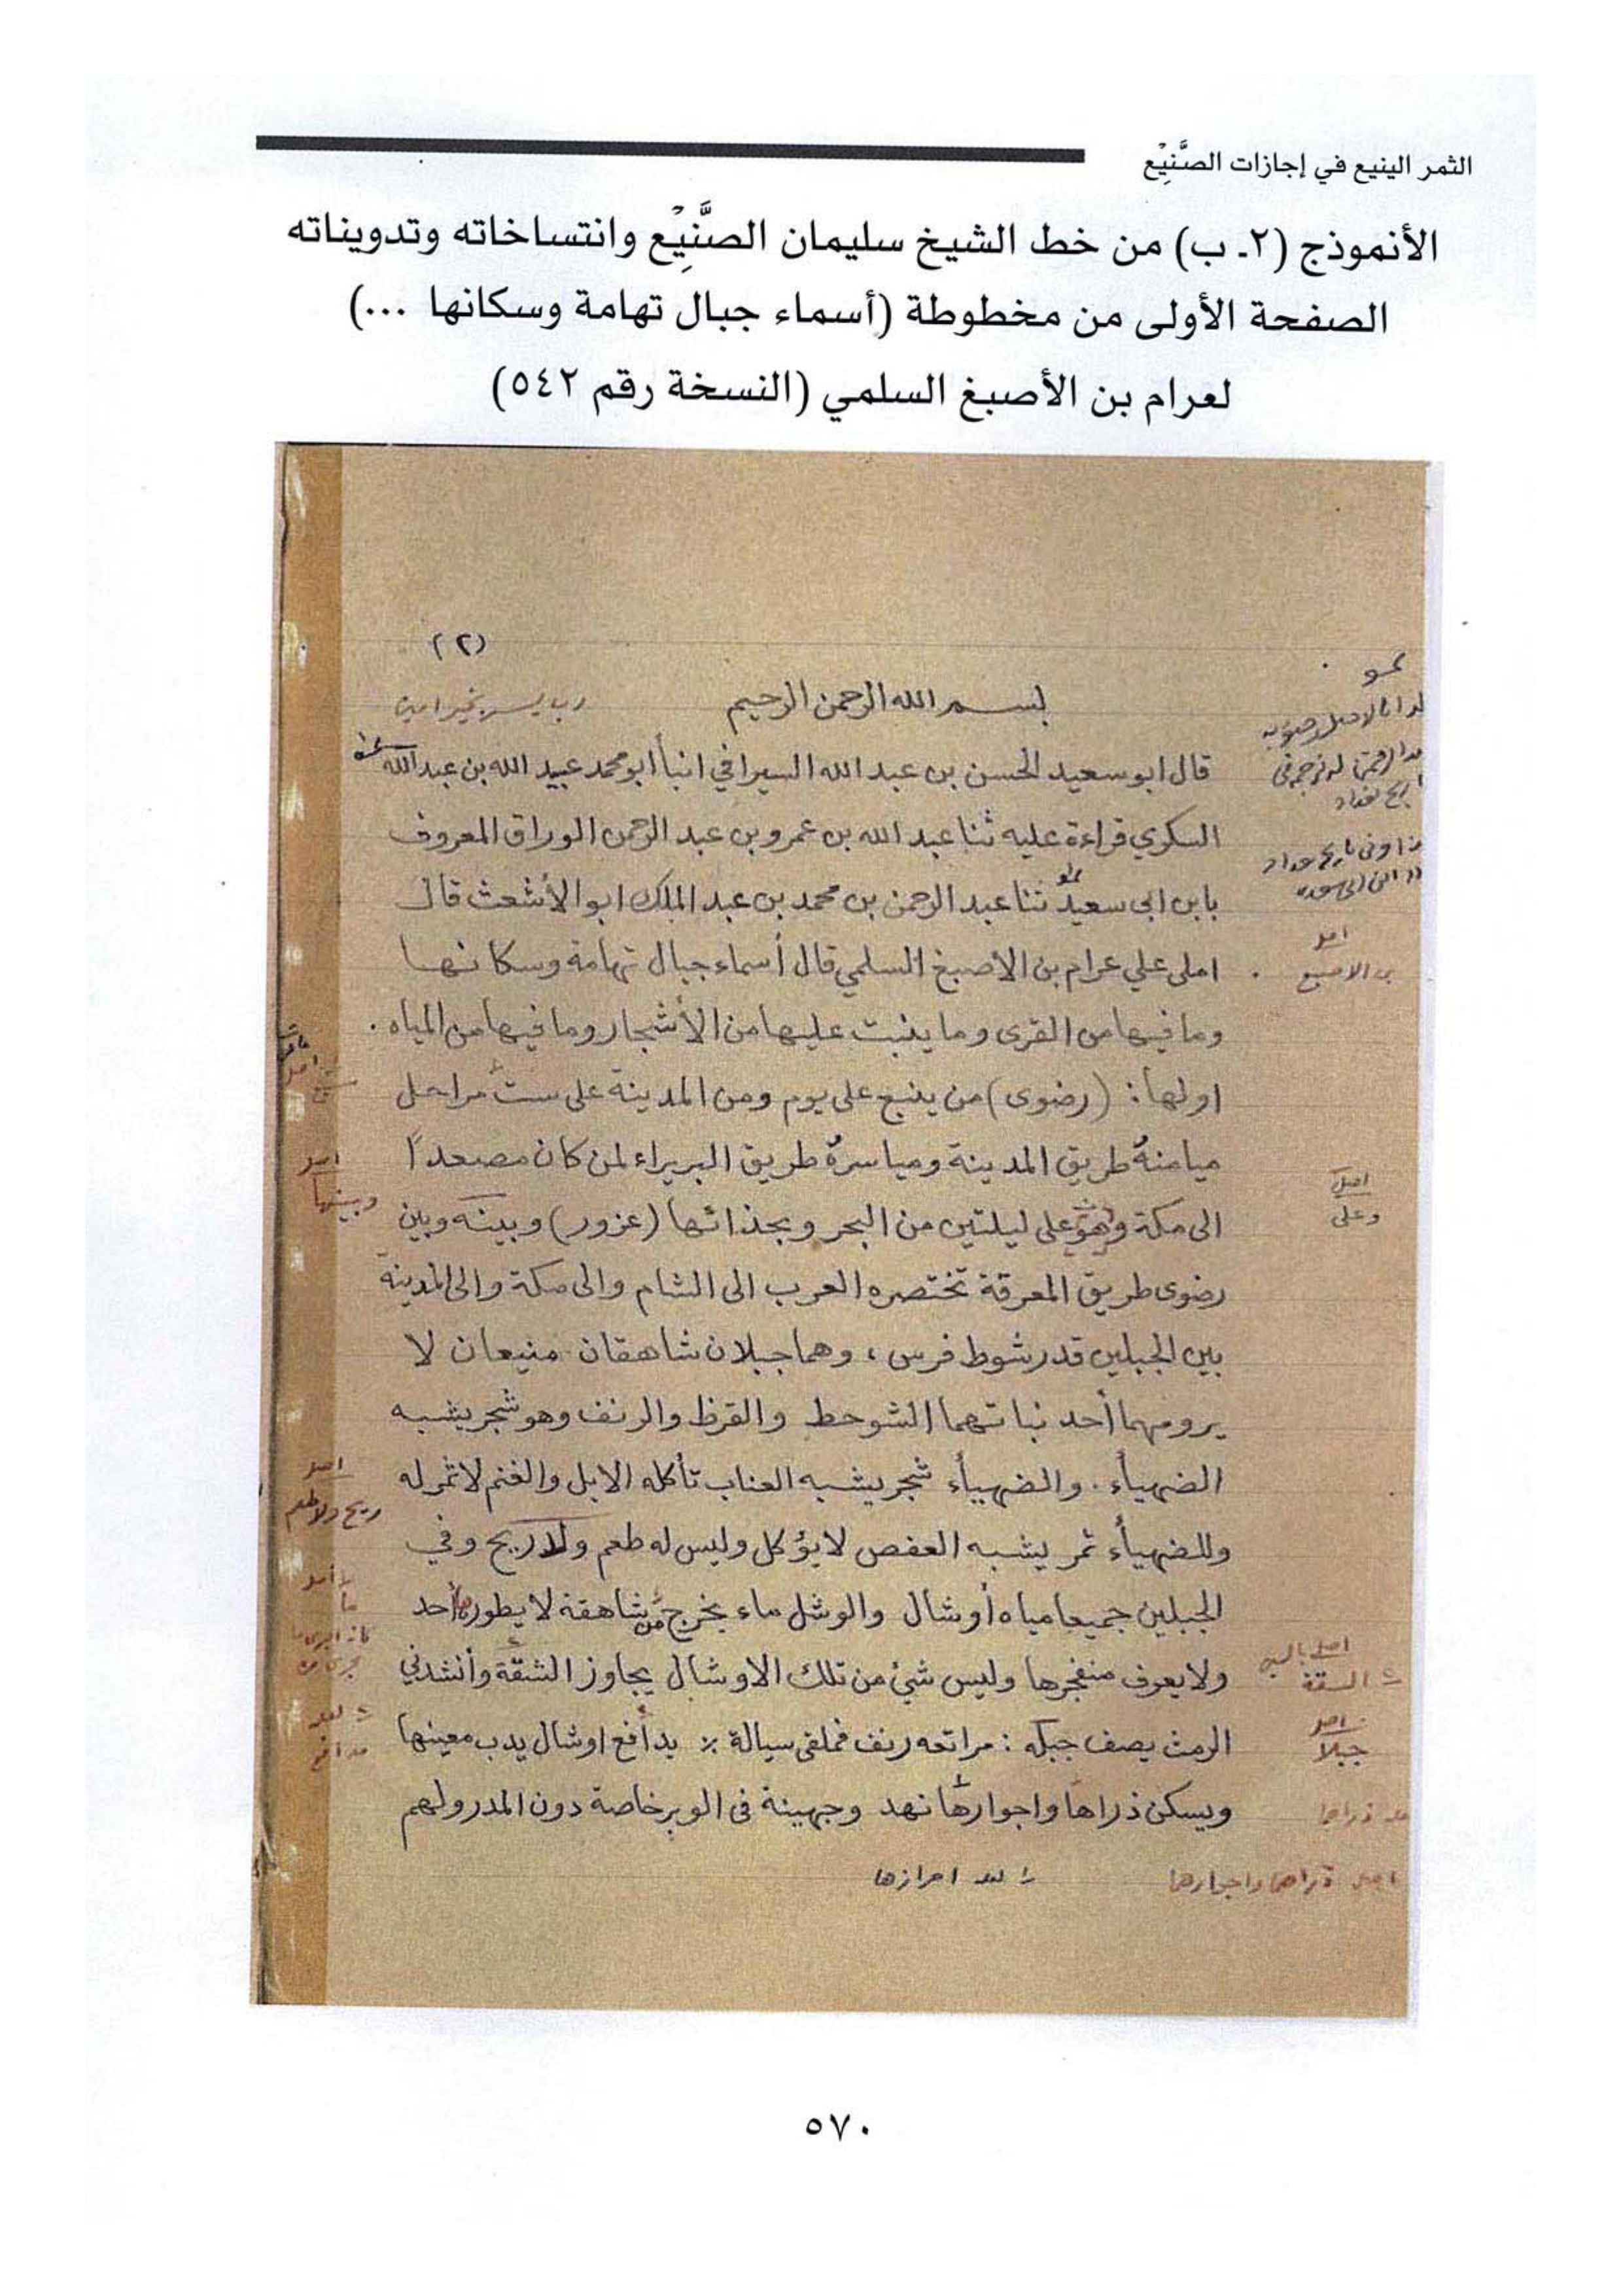 الثمر الينيع في إجازات الصَّنِيْع
الأنموذج (٢ـ ب) من خط الشيخ سليمان الصَّنِيْع وانتساخاته وتدويناته
الصفحة الأولى من مخطوطة (أسماء جبال تهامة وسكانها ...)
لعرام بن الأصبغ السلمي (النسخة رقم ٥٤٢)
(٢)
بسم الله الرحمن الرحيم
رب يسر بخير امين
قال ابو سعيد الحسن بن عبد الله السيرافي انبأ ابو محمد عبيد الله بن عبد الله
السكري قراءة عليه ثنا عبد الله بن عمرو بن عبد الرحمن الوراق المعروف
بابن ابي سعيد ثنا عبد الرحمن بن محمد بن عبد الملك ابو الأشعث قال
املى علي عرام بن الاصبغ السلمي قال أسماء جبال تهامة وسكانها
وما فيها من القرى وما ينبت عليها من الأشجار وما فيها من المياه .
اولها : (رضوى) من ينبع على يوم ومن المدينة على ست مراحل
ميامنهُ طريق المدينة ومياسرهُ طريق البريراء لمن كان مصعداً
الى مكة وهو على ليلتين من البحر وبحذائها (عزور) وبينه وبين
رضوى طريق المعرقة تختصره العرب الى الشام والى مكة والى المدينة
بين الجبلين قدر شوط فرس ، وهما جبلان شاهقان منيعان لا
يرومهما أحد نباتهما الشوحط والقرظ والرنف وهو شجر يشبه
الضهيأء . والضهيأء شجر يشبه العناب تأكله الابل والغنم لا ثمر له
وللضهيأء ثمر يشبه العفص لا يؤكل وليس له طعم ولا ريح وفي
الجبلين جميعا مياه أوشال والوشل ماء يخرج من شاهقة لا يطورها أحد
ولا يعرف منفجرها وليس شئ من تلك الاوشال يجاوز الشقة وأنشدني
الرمث يصف جبله : مراتعه رنف فملقى سيالة ٪ بدأفع اوشال يدب معينها
ويسكن ذراها واجوارها نهد وجهينة في الوبر خاصة دون المدر ولهم
بن الاصبغ
اصل
وعلى
السقة
اصل
جبلا
اصل
وبينها
اصل
ريح ولا طعم
اصل ذراها واجوارها
احرازها
٥٧٠